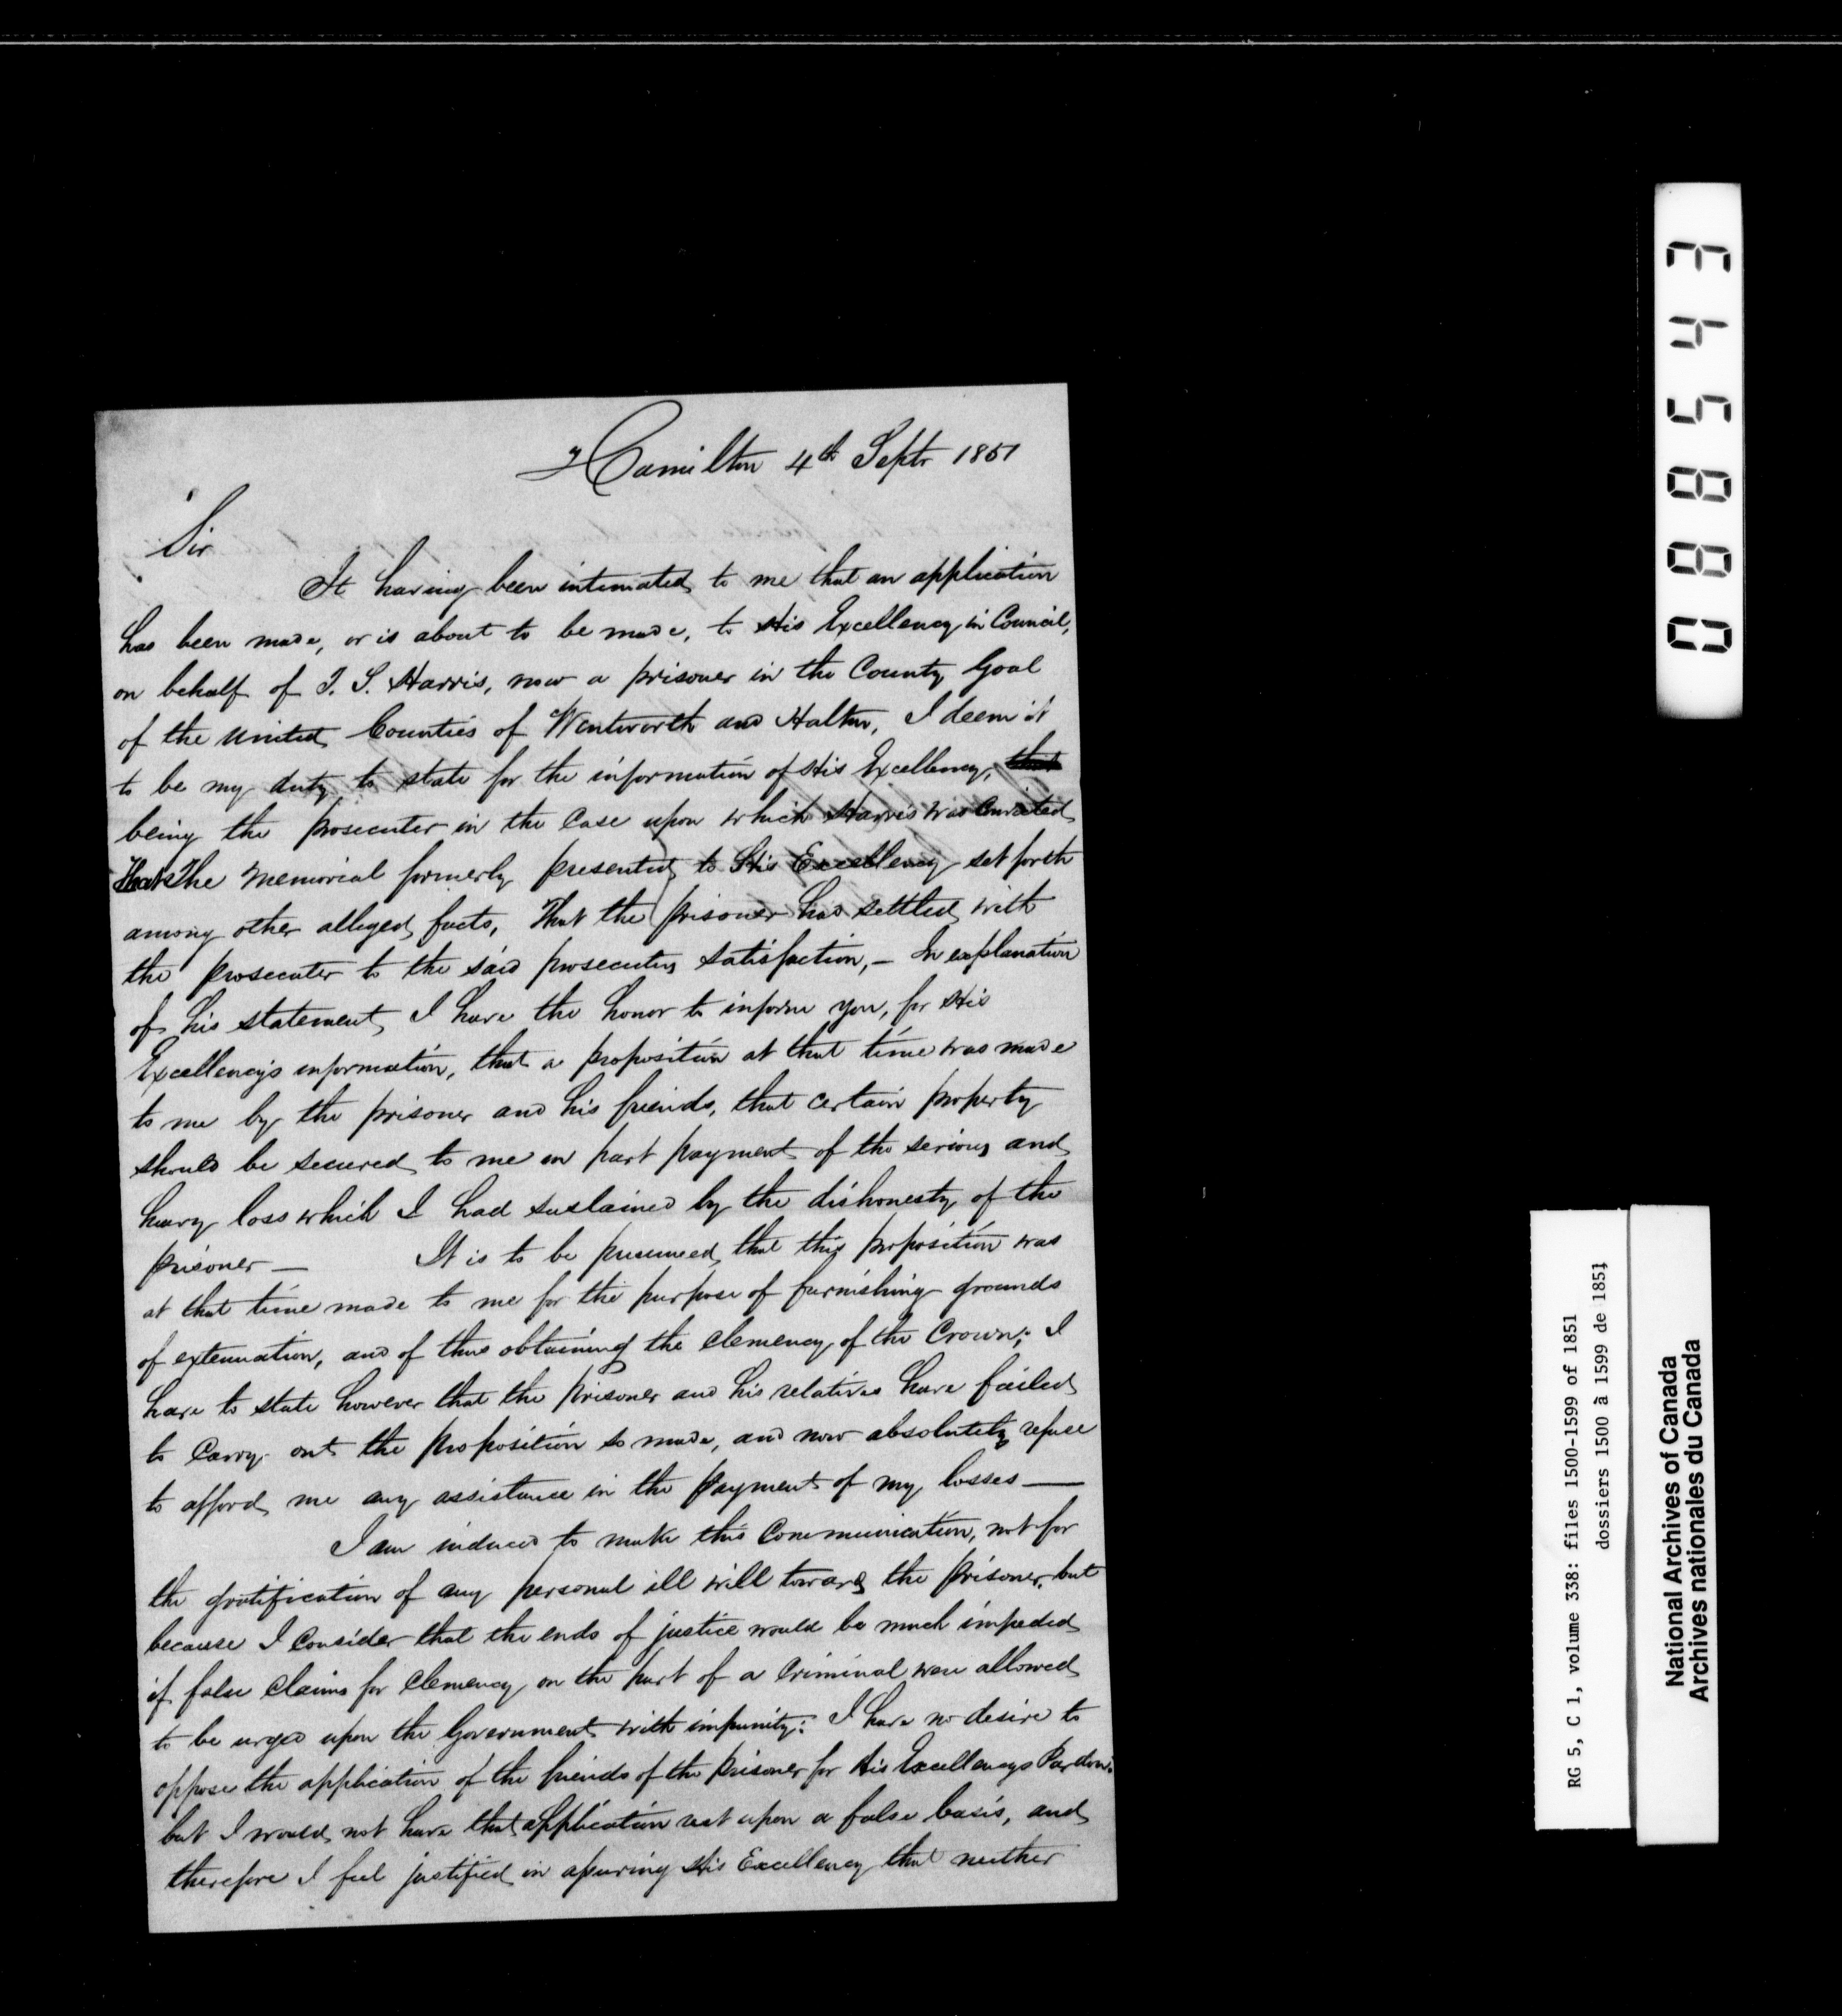 Hamilton 4th Septr 1851
Sir
It having been intimated to me that an application
has been made, or is about to be made, to His Excellency in Council,
on behalf of T. S. Harris, now a prisoner in the County Goal
of the united Counties of Wentworth and Halton, I deem it
to be my duty to state for the information of His Excellency, that
being the prosecuter in the Case upon which Harris was Convicted
That The Memorial formerly presented to His Excellency set forth
among other alleged facts, That the prisoner had settled with
the prosecuter to the said prosecuters satisfaction, — In explanation
of his statement I have the honor to inform you, for His
Excellencys information, that a proposition at that time was made
to me by the prisoner and his friends, that certain property
should be secured to me in part payment of the serious and
heavy loss which I had sustained by the dishonesty of the
prisoner — It is to be presumed that this proposition was
at that time made to me for the purpose of furnishing grounds
of extenuation, and of thus obtaining the Clemency of the Crown; I
have to state however that the prisoner and his relatives have failed
to Carry out the proposition so made, and now absolutely refuse
to afford me any assistance in the payment of my losses —
I am induced to make this Communication, not for
the gratification of any personal ill will towards the prisoner, but
because I Consider that the ends of justice would be much impeded
if false Claims for Clemency on the part of a Criminal were allowed
to be urged upon the Government with impunity: I have no desire to
oppose the application of the friends of the prisoner for His Excellencys Pardon:
but I would not have that application rest upon a false basis, and
therefore I feel justified in assuring His Excellency that neither
088543
RG 5, C 1, volume 338: files 1500-1599 of 1851
dossiers 1500 à 1599 de 1851
National Archives of Canada
Archives nationales du Canada